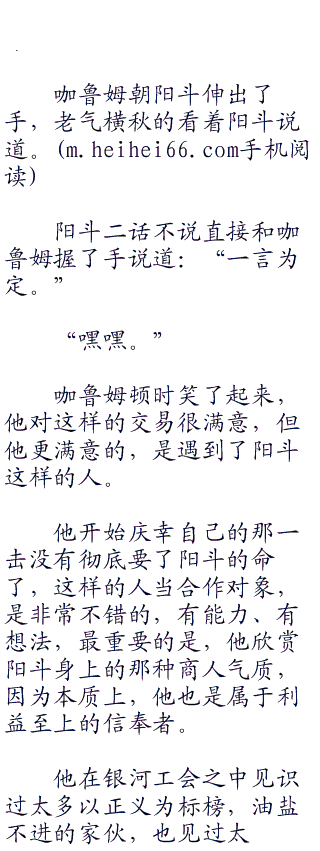 咖鲁姆朝阳斗伸出了
手，老气横秋的看着阳斗说
道。(m.heihei66.com手机阅
读)
阳斗二话不说直接和咖
鲁姆握了手说道：“一言为
定。”
“嘿嘿。”
咖鲁姆顿时笑了起来，
他对这样的交易很满意，但
他更满意的，是遇到了阳斗
这样的人。
他开始庆幸自己的那一
击没有彻底要了阳斗的命
了，这样的人当合作对象，
是非常不错的，有能力、有
想法，最重要的是，他欣赏
阳斗身上的那种商人气质，
因为本质上，他也是属于利
益至上的信奉者。
他在银河工会之中见识
过太多以正义为标榜，油盐
不进的家伙，也见过太